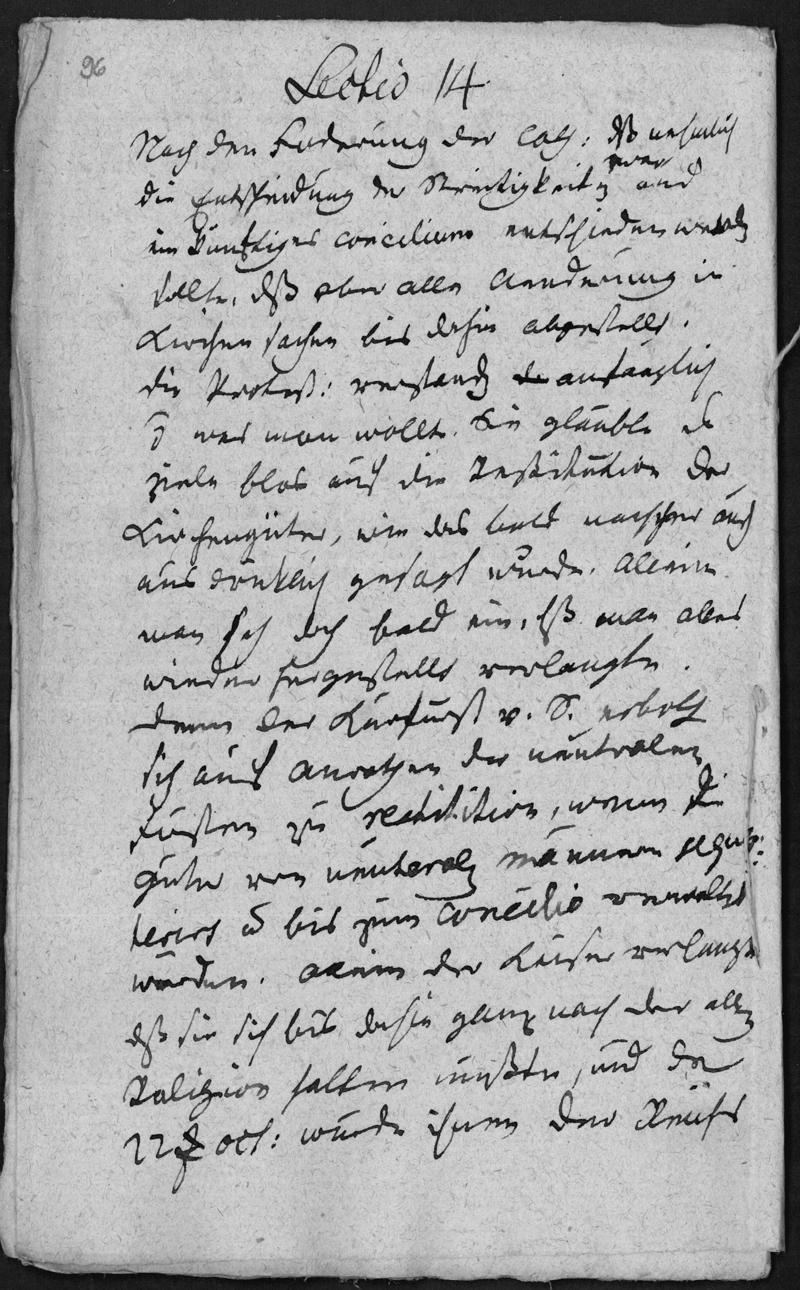 96
Lectio 14
Nach den Foderung der Cath: dß nehmlich
die Entscheidung der Streitigkeitn zwar
im künftiges concilium entschieden werdn
sollte, dß aber alle Aenderung in
Kirchen sachen bis dahin abgestellt.
die Protest: verstandn anfänglich
was man wollte. Sie glaubte
ziele blos auf die Restitution der
Kirchengüter, wie das bald nachher auch
ausdrüklich gesagt wurde. Allein
man sah doch bald ein, dß man alles
wieder hergestellt verlangte.
denn der Kurfürst v. S. erboth
sich auf Anrathen der neutralen
Fürsten zu restitition, wenn die
Güter von neuteraln männern seques:
terirt u bis zum Concilio verwaltet
würden. Allein der Kaiser verlangte
dß sie sich bis dahin ganz nach der altn
Religion halten müßten, und de
22 oct: wurde ihnen der Reichs